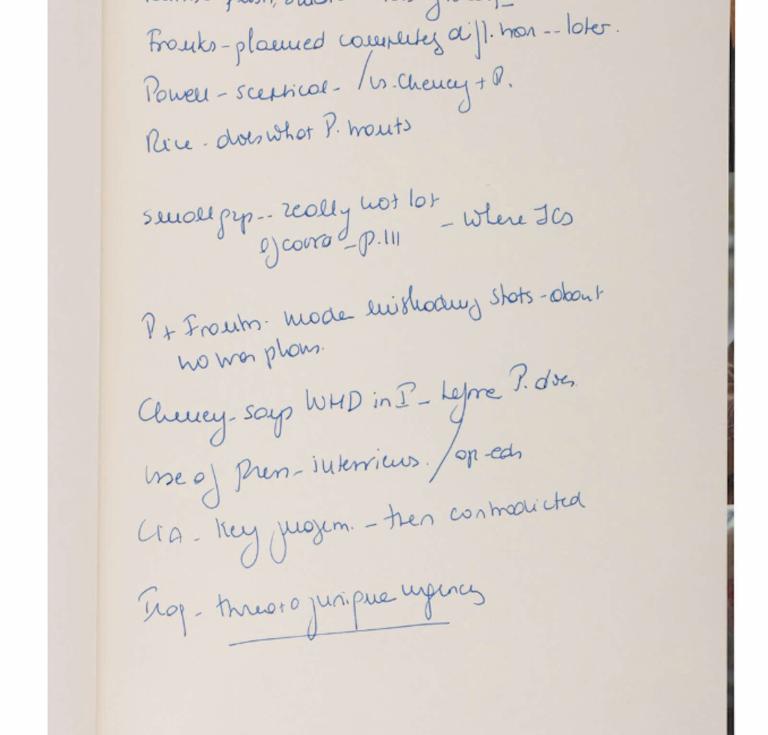 Franks - planned completely diff. war -- later.
Powell - sceptical - / vs. Cheney + P.
Rice - does what P. wants
small grp -- really not lot - where JCS
of coord - p. 111
P + Franks - made misleading shots - about
no war plans.
Cheney - says WMD in I - before P. does
use of Pres - interviews. / op-eds
CIA - key judgem. - then contradicted
Iraq - threat of unique urgency